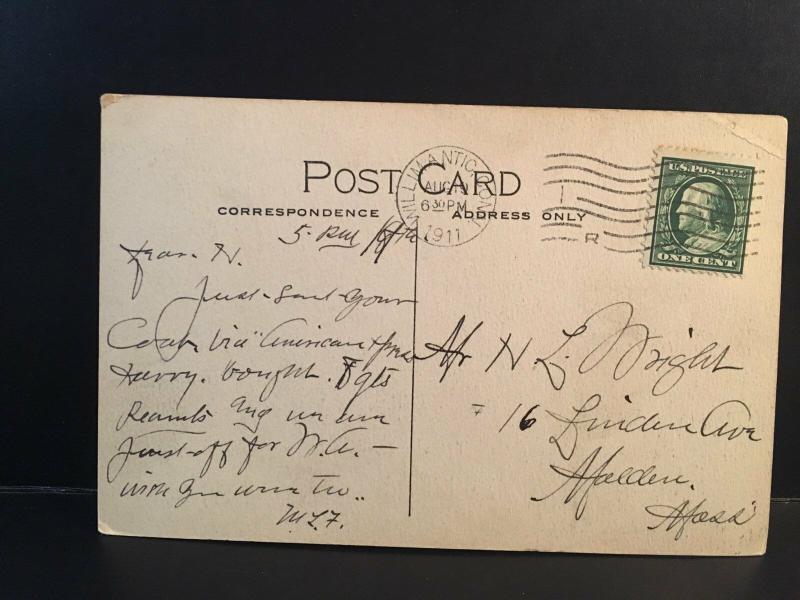 POST CARD
CORRESPONDENCE
ADDRESS ONLY
WILLIMANTIC, CONN.
AUG 10
6 30 PM
1911
R
U.S. POSTAGE
ONE CENT
5. PM
Dear H.
Just sent your
Coat. Via American Express
Harry. bought. qts
Peanuts and
Just off for W.A. —
wish you were too..
M L F.
Mr H L. Wright
16 Linden Ave
Malden.
Mass